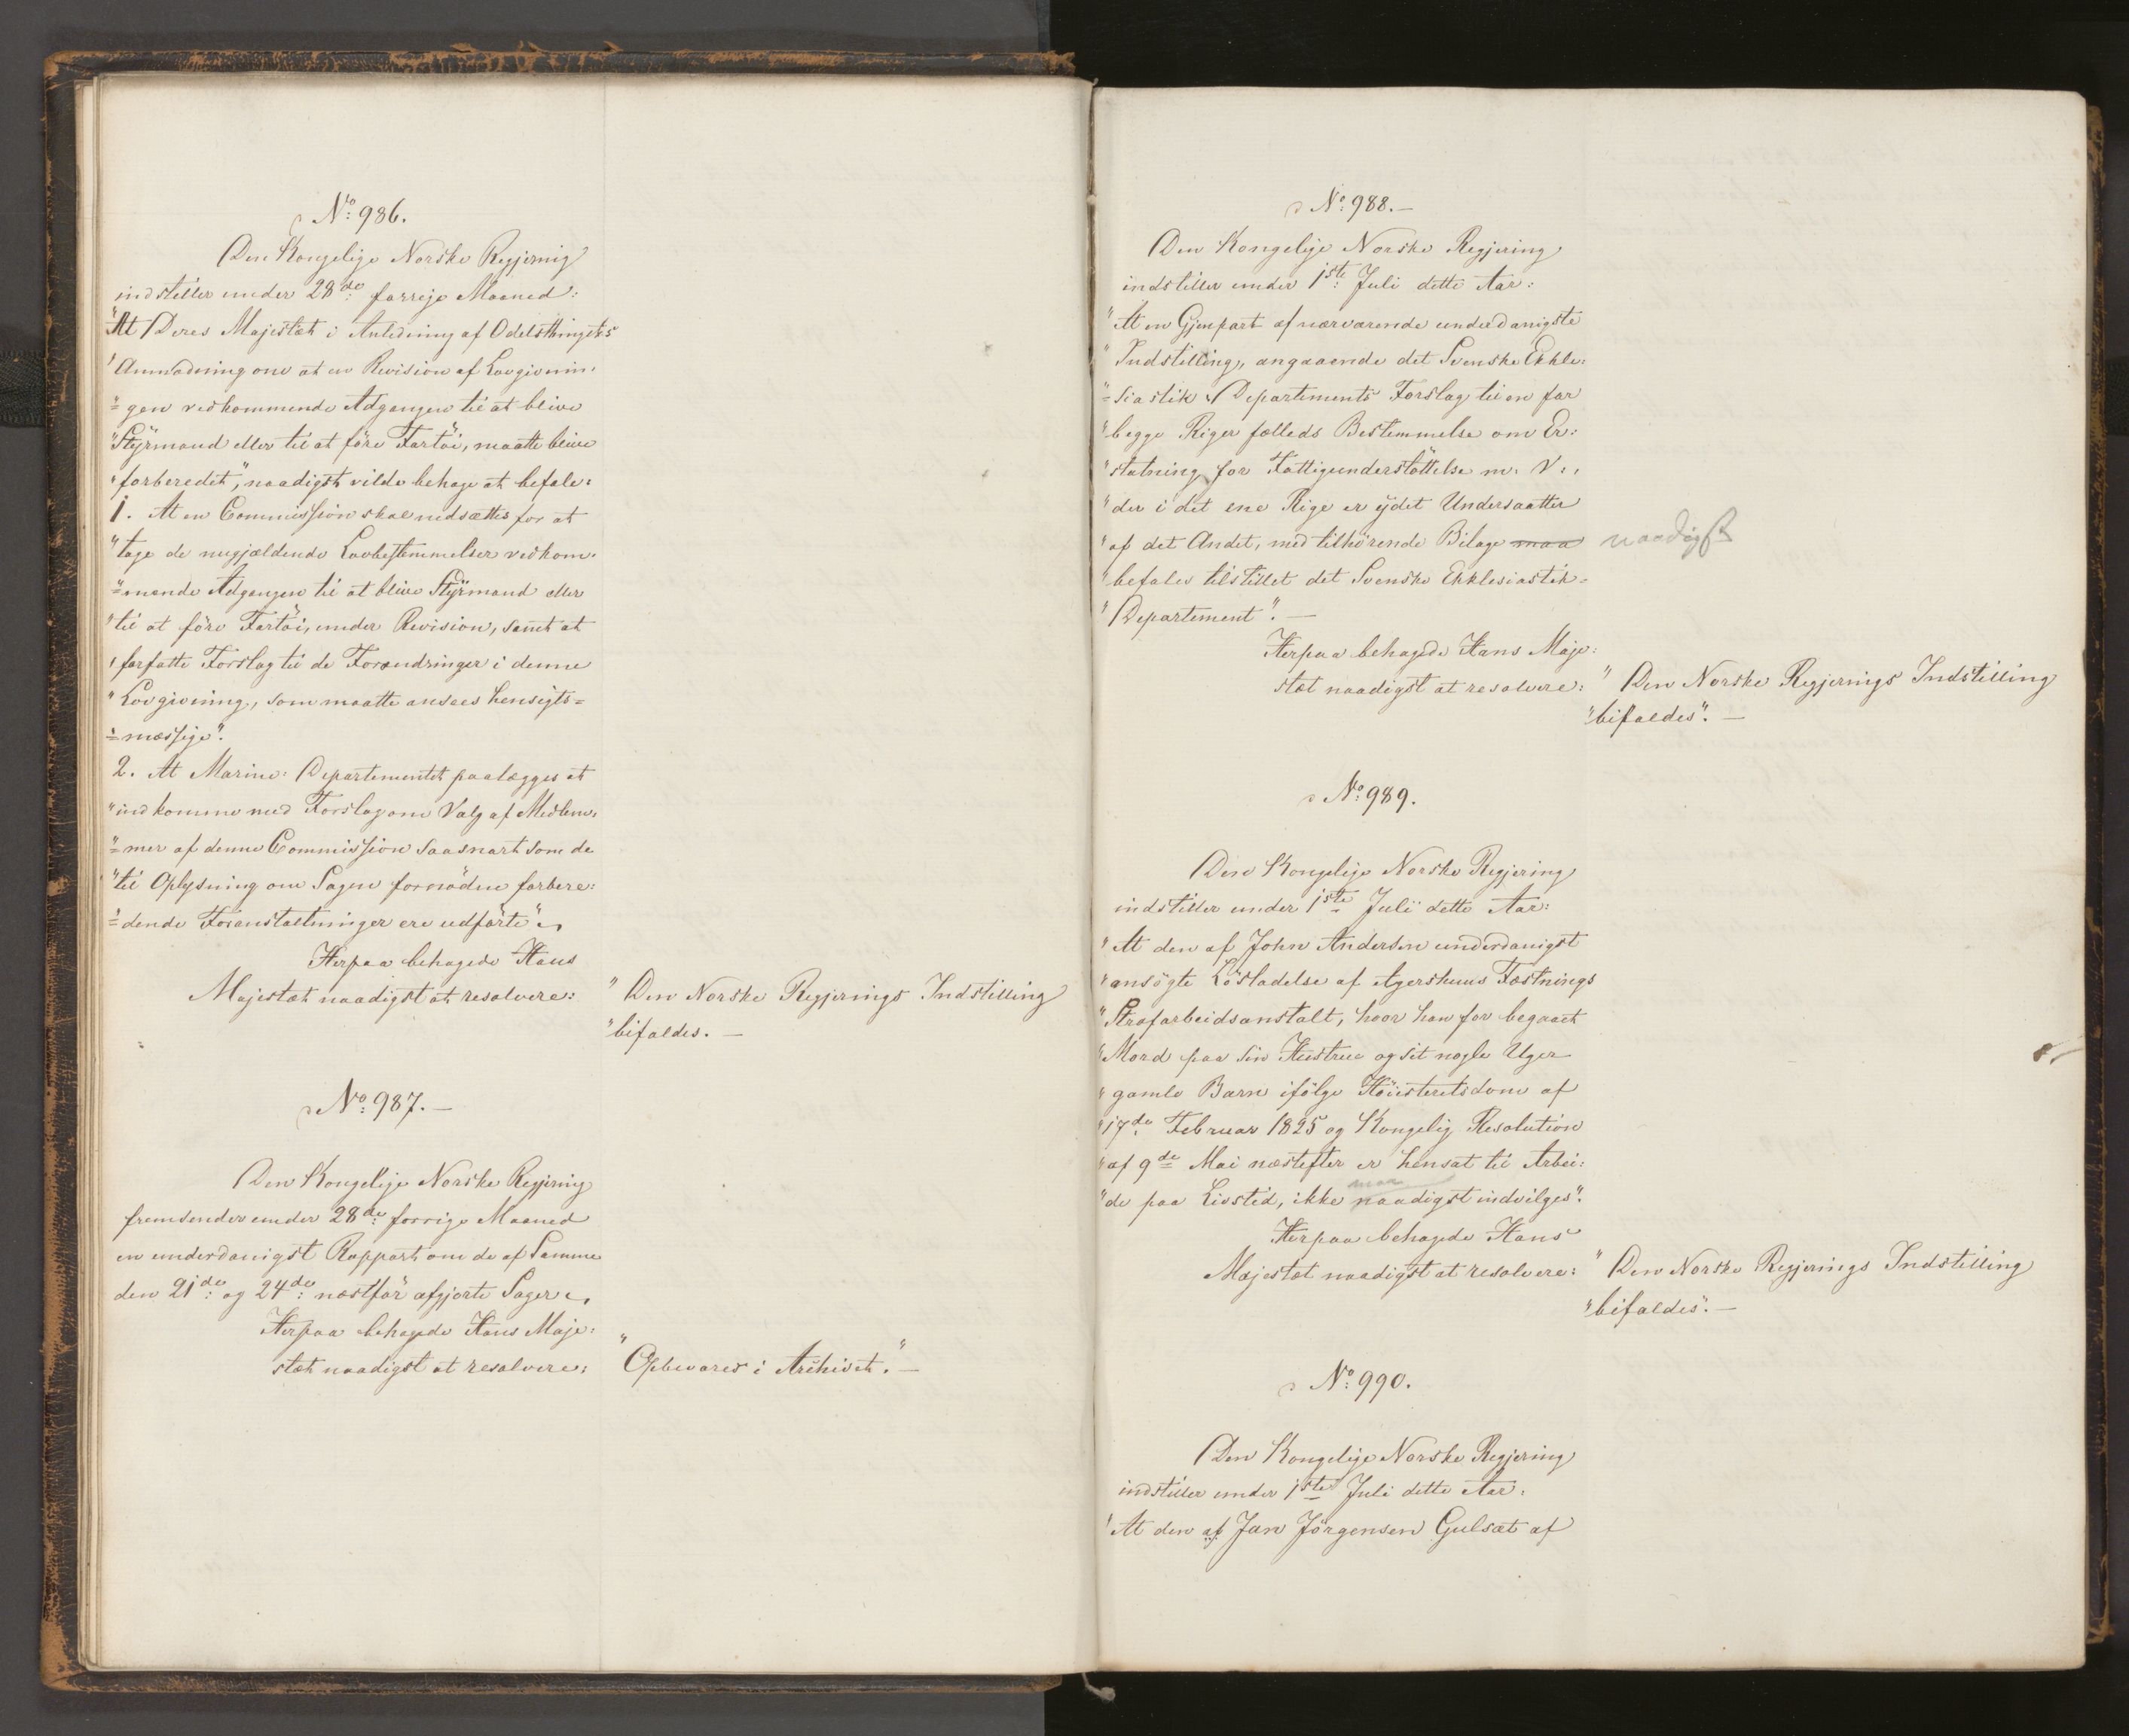 No: 986.
Den Kongelige Norske Regjering
indstiller under 28de: forrige Maaned:
"At Deres Majestæt i Anledning af Odelsthingets
"Anmodning om at en Revision af Lovgivnin-
"=gen vedkommende Adgangen til at blive
"Styrmand eller til at före Fartöi, maatte blive
"forberedet", naadigst vilde behage at befale:
1. At en Commission skal nedsættes for at
"tage de nugjældende Lovbestemmelser vedkom-
"=mende Adgangen til at blive Styrmand eller
"til at före Fartöi, under Revision, samt at
"forfatte Forslag til de Forandringer i denne
"Lovgivning, som maatte ansees hensigts=
"=mæssige".
2. At Marine-Departementet paalægges at
"indkomme med Forslag om Valg af Medlem-
"=mer af denne Commission saasnart som de
"til Oplysning om Sagen fornödne forbere-
"=dende Foranstaltninger ere udförte".
Herpaa behagede Hans
Majestæt naadigst at resolvere:
"Den Norske Regjerings Indstilling
"bifaldes. —
No: 987. —
Den Kongelige Norske Regjering
fremsender under 28de: forrige Maaned
en underdanigst Rapport om de af Samme
den 21de: og 24de: næstför afgjorte Sager.
Herpaa behagede Hans Maje-
stæt naadigst at resolvere:
"Opbevares i Archivet." —
No: 988. —
Den Kongelige Norske Regjering
indstiller under 1ste: Juli dette Aar:
"At en Gjenpart af nærværende underdanigste
"Indstilling, angaaende det Svenske Ekkle-
"=siastik Departements Forslag til en for
"begge Riger fælleds Bestemmelse om Er-
"statning for Fattigunderstöttelse m. V.,
"der i det ene Rige er ydet Undersaatter
"af det Andet, med tilhörende Bilage maa naadigst
"befales tilstillet det Svenske Ekklesiastik-
"Departement". —
Herpaa behagede Hans Maje-
stæt naadigst at resolvere:
"Den Norske Regjerings Indstilling
"bifaldes". —
No: 989.
Den Kongelige Norske Regjering
indstiller under 1ste Juli dette Aar:
"At den af John Andersen underdanigst
"ansögte Lösladelse af Agershuus Fæstnings
"Strafarbeidsanstalt, hvor han for begaaet
"Mord paa sin Hustrue og sit nogle Uger
"gamle Barn ifölge Höiesteretsdom af
"17de Februar 1825 og Kongelig Resolution
"af 9de Mai næstefter er hensat til Arbei-
maa
"de paa Livstid, ikke naadigst indvilges".
Herpaa behagede Hans
Majestæt naadigst at resolvere:
"Den Norske Regjerings Indstilling
"bifaldes". —
No: 990.
Den Kongelige Norske Regjering
indstiller under 1ste Juli dette Aar:
"At den af Jan Jörgensen Gulsæt af